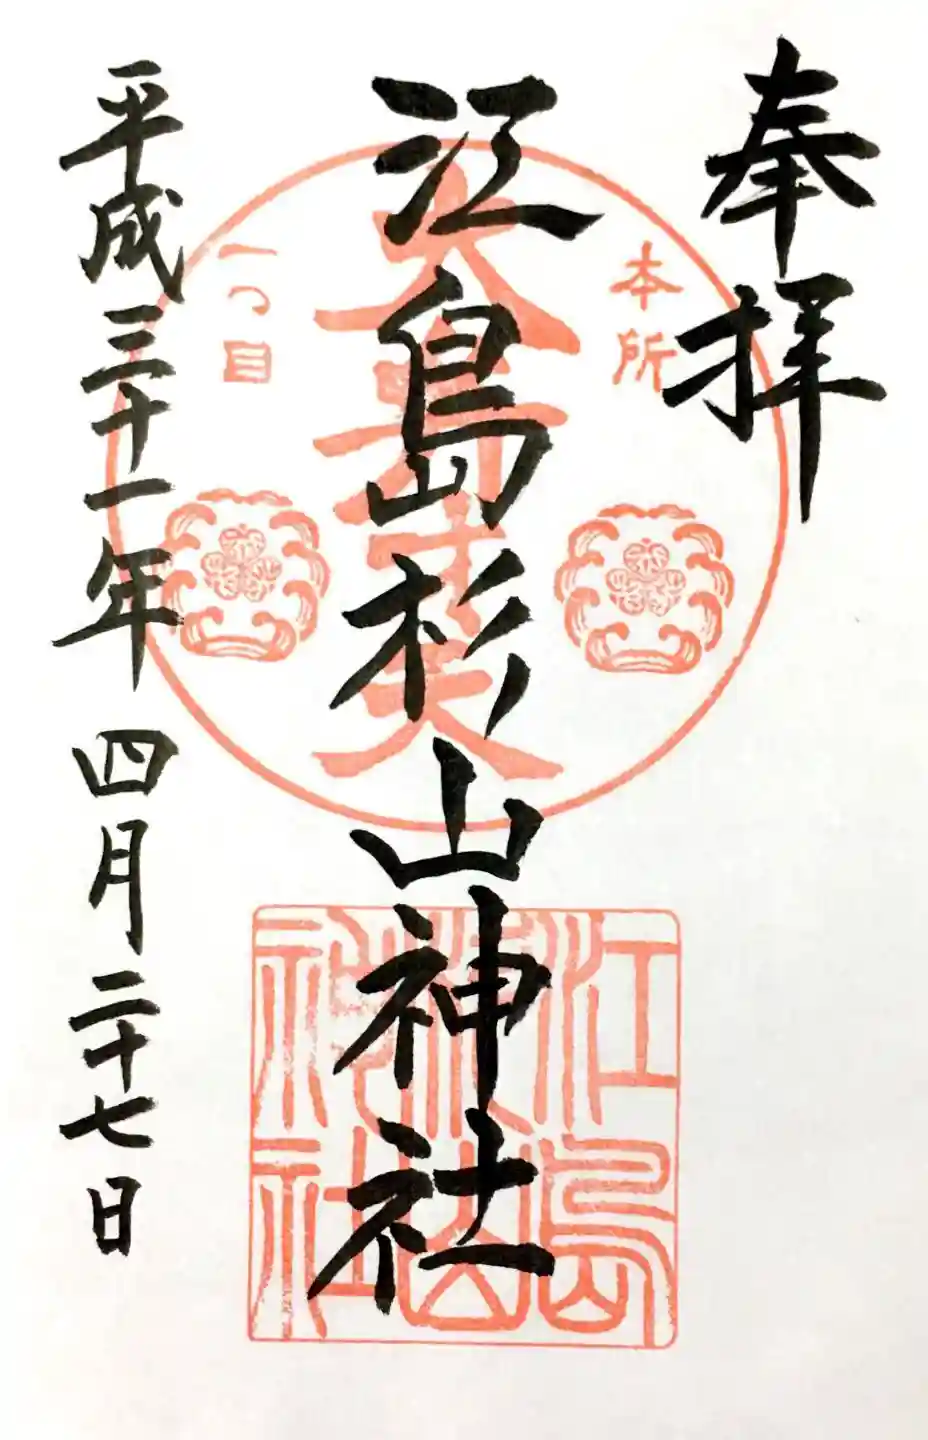 奉拝
本所
江島杉山神社
大弁才天
一つ目
江島
杉山
神社
平成三十一年四月二十七日